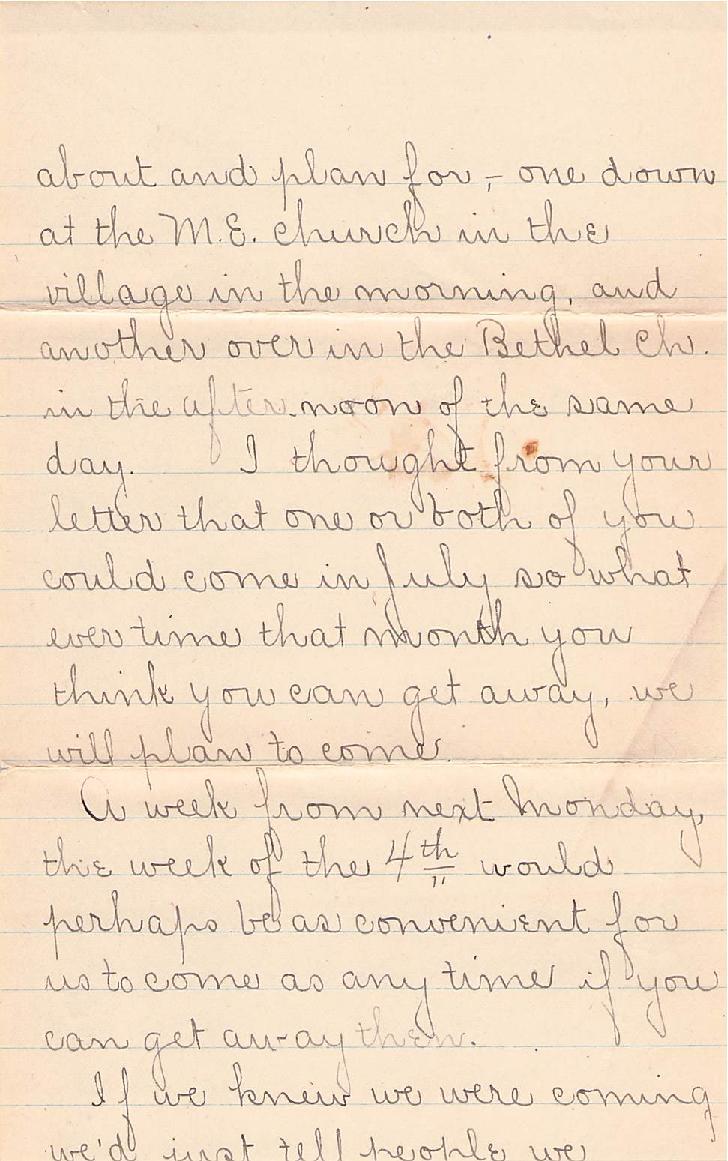 about and plan for, - one down
at the M.E. church in the
village in the morning, and
another over in the Bethel Ch.
in the after noon of the same
day. I thought from your
letter that one or both of you
could come in July so what
ever time that month you
think you can get away, we
will plan to come.
A week from next Monday,
the week of the 4th would
perhaps be as convenient for
us to come as any time if you
can get away then.
If we knew we were coming
we'd just tell people we